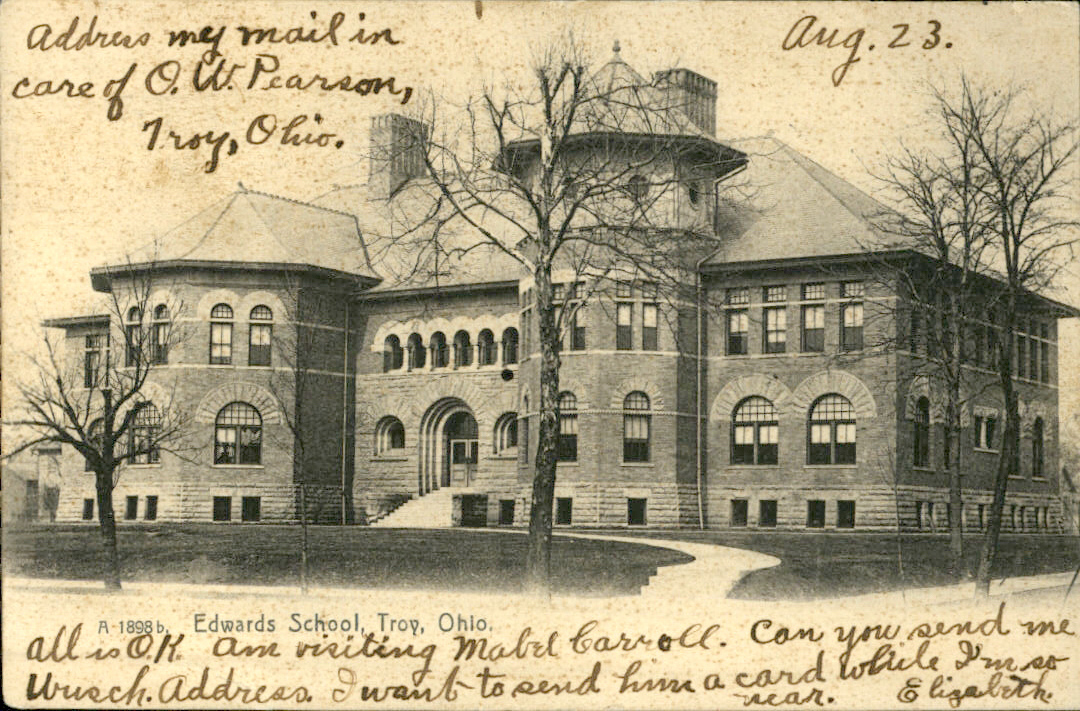 Address my mail in
care of O. W. Pearson,
Troy, Ohio.
Aug. 23.
A 1898 b. Edwards School, Troy, Ohio.
all is O.K. Am visiting Mabel Carroll. Can you send me
Wusch. Address. I want to send him a card while I'm so
near. Elizabeth.